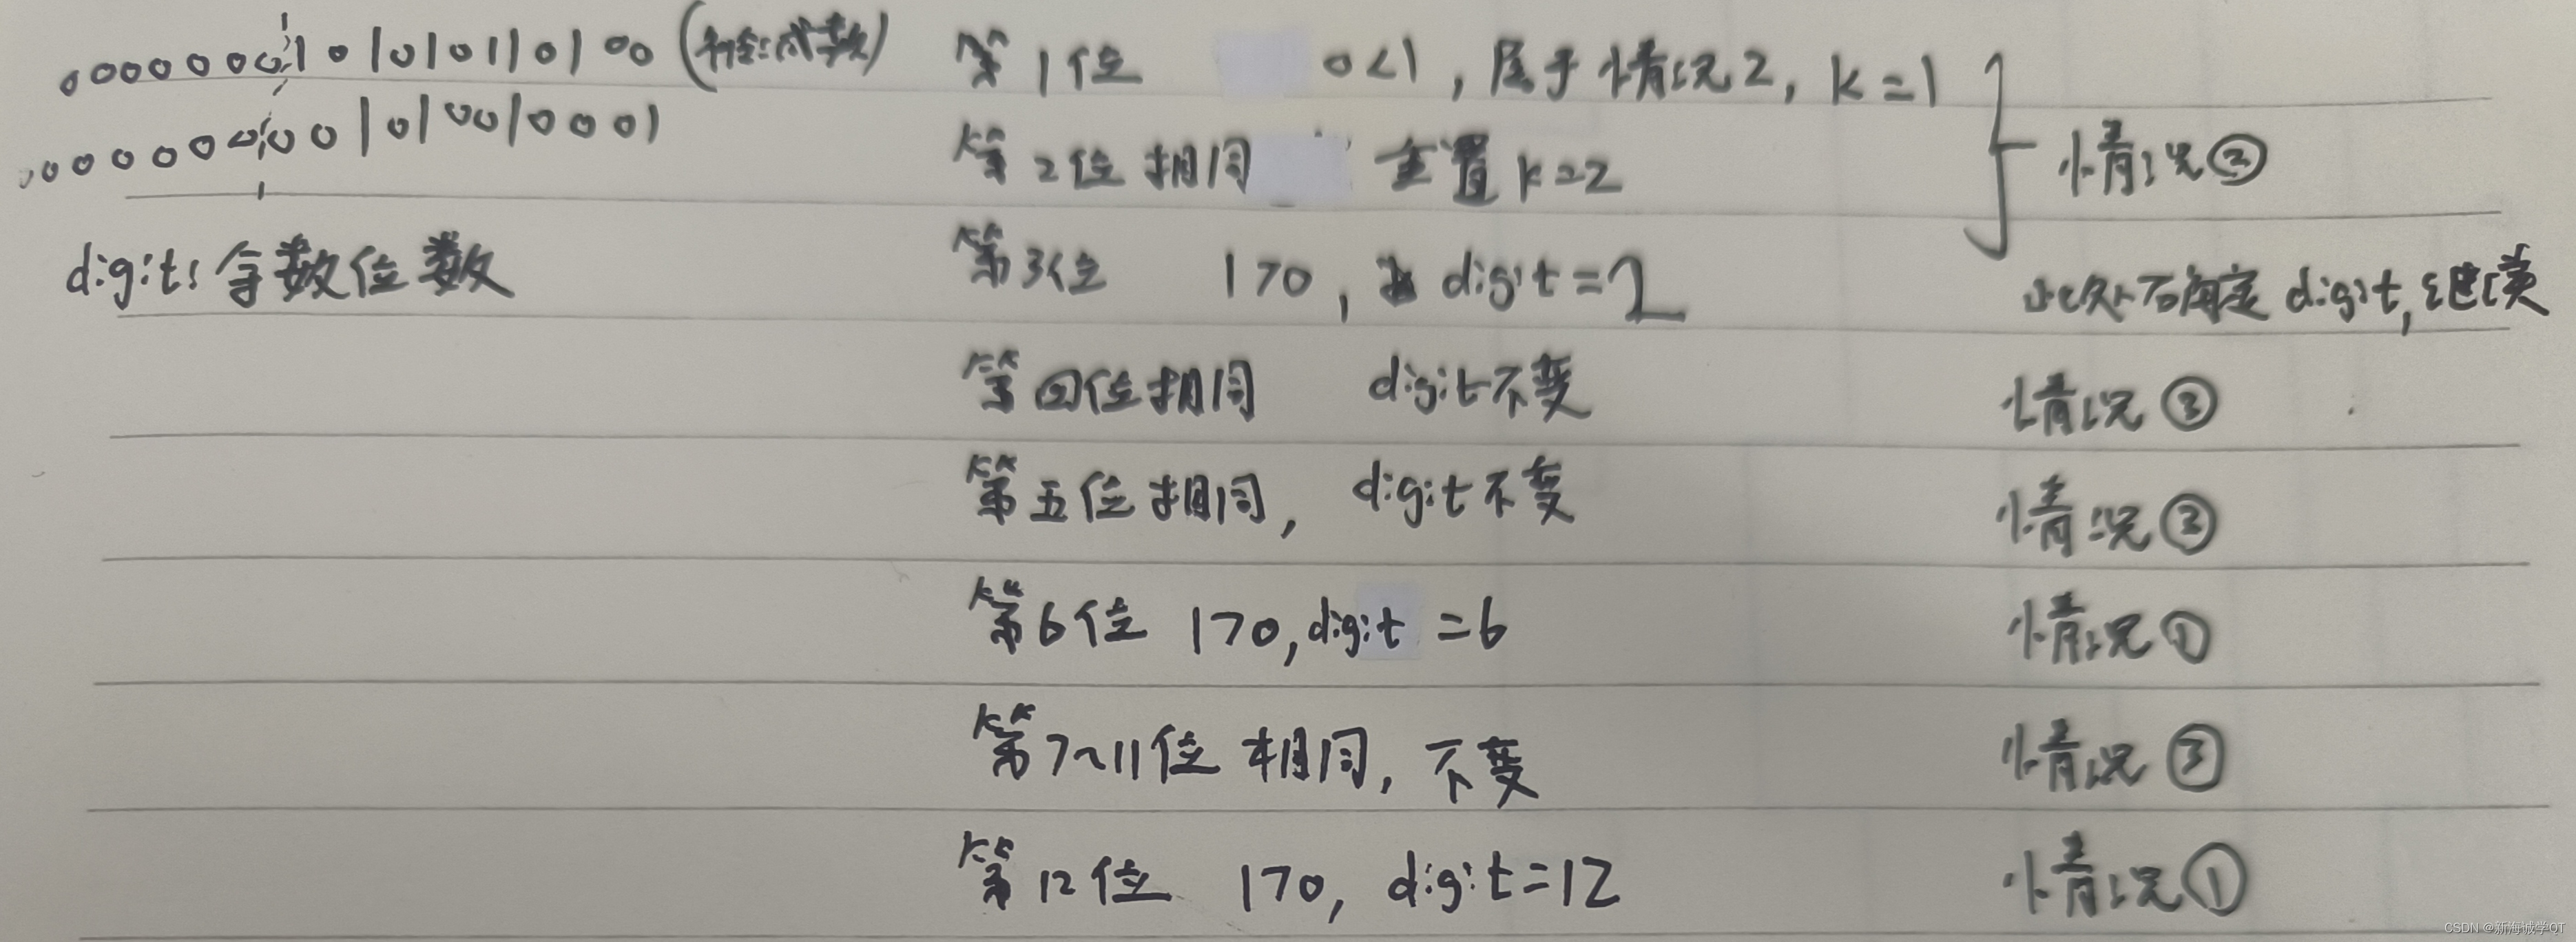 0000000101010110100
第1位 0<1，属于情况2，k=1
000000000101001000 1
第2位 相同 重置k=2
情况②
digit：余数位数
第3位 1>0， digit=2
此处不确定digit，继续
第四位相同 digit不变
情况③
第五位相同， digit不变
情况③
第6位 1>0，digit=6
情况①
第7~11位 相同，不变
情况③
第12位 1>0，digit=12
情况①
CSDN @新海诚学QT